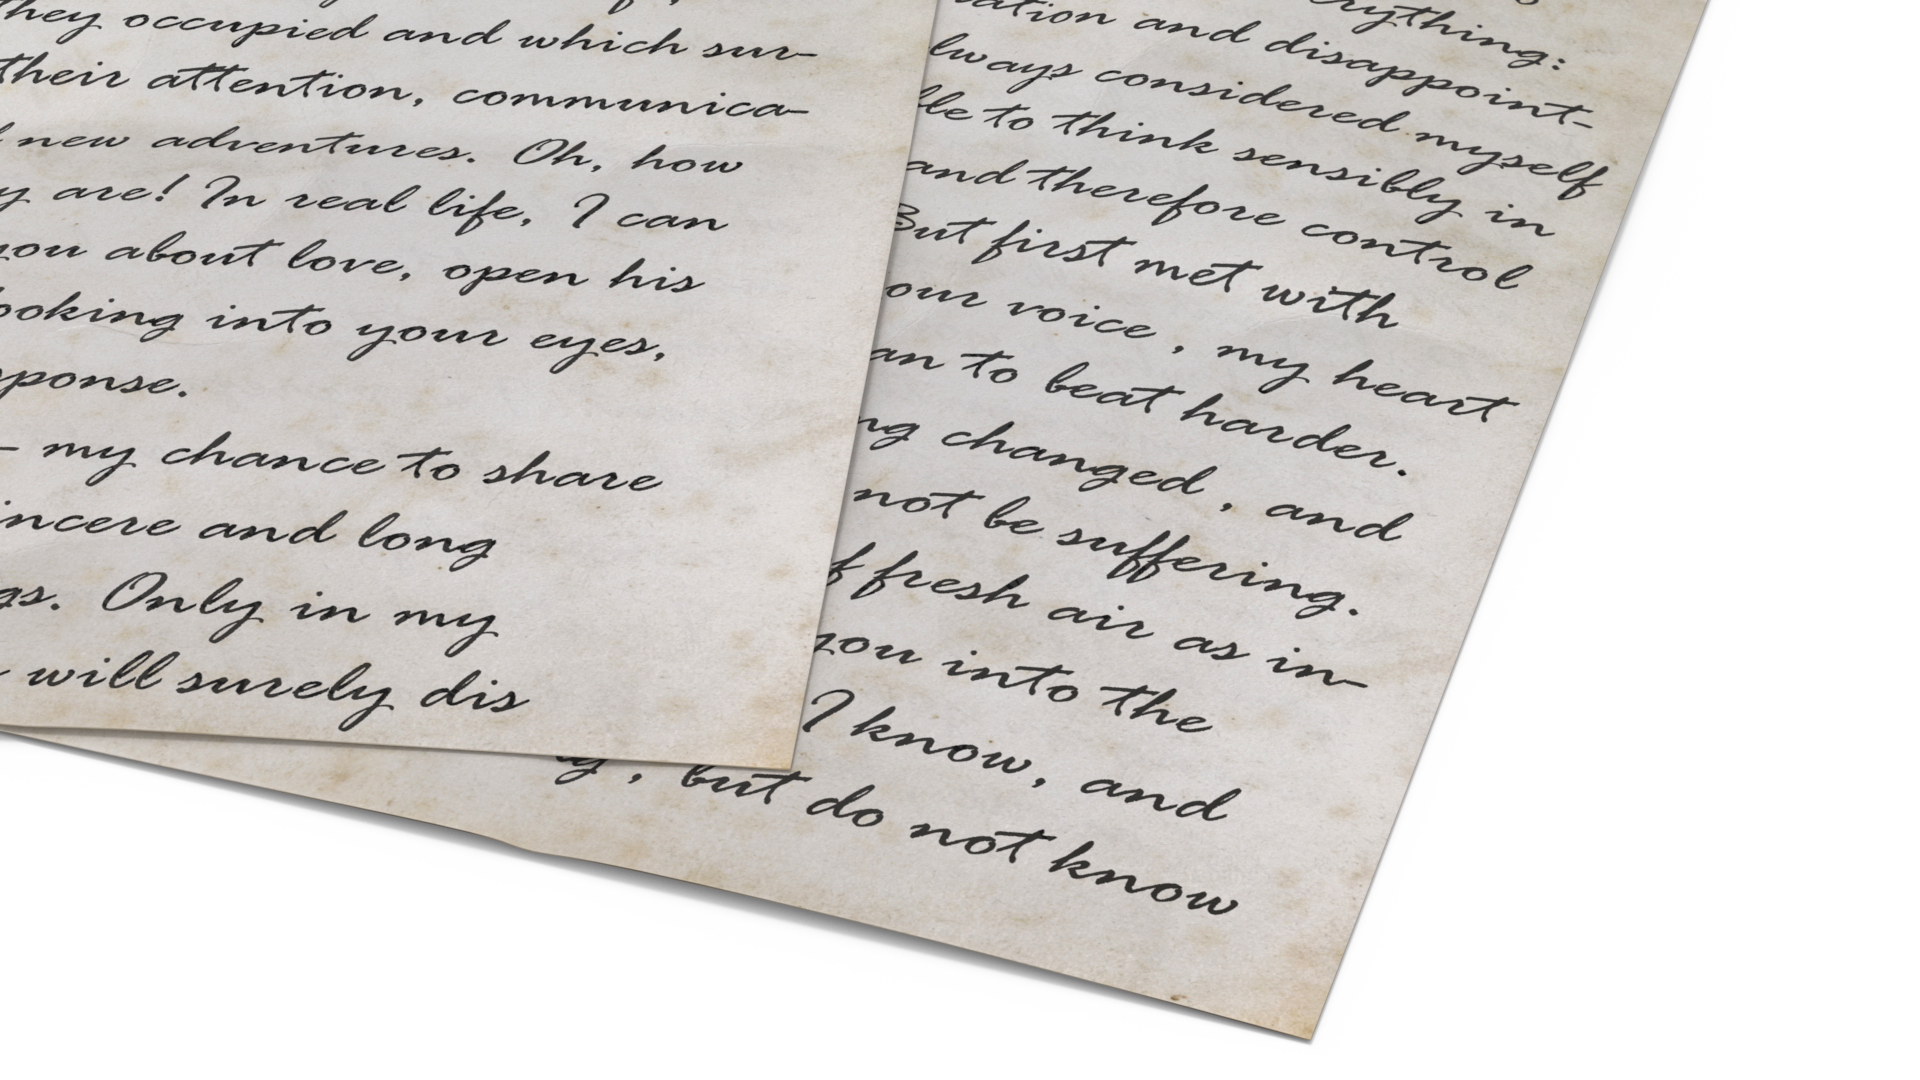 they occupied and which sur-
their attention, communica-
new adventures. Oh, how
are! In real life, I can
you about love, open his
looking into your eyes,
- my chance to share
sincere and long
Only in my
will surely dis
everything:
and disappoint-
always considered myself
to think sensibly in
and therefore control
But first met with
our voice , my heart
to beat harder.
changed , and
not be suffering.
fresh air as in-
you into the
I know, and
, but do not know